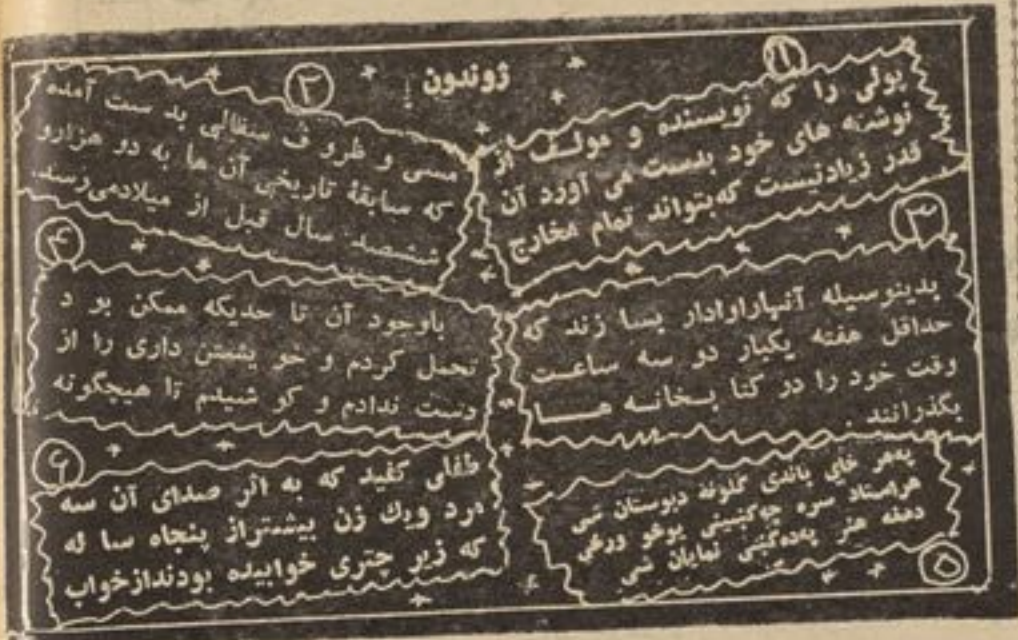 ژوندون
۱
پولی را که نویسنده و مولف از
نوشته های خود بدست می آورد آن
قدر زیادنیست که بتواند تمام مخارج
۲
مسی و ظرو ف سفالی بد ست آمده
که سابقهٔ تاریخی آن ها به دو هزارو
ششصد سال قبل از میلادمیرسد.
۳
بدینوسیله آنهاراوادار بسا زند که
حداقل هفته یکبار دو سه ساعت
وقت خود را در کتا بخانه هــا
بگذرانند .
۴
باوجود آن تا حدیکه ممکن بو د
تحمل کردم و خو یشتن داری را از
دست ندادم و کو شیدم تا هیچگونه
۵
په هر ځای باندی گلونه دبوستان شی
هراستاد سره چه کښینی یوخو ورځی
دهغه هنر په ده کښی نمایان شی
۶
طفلی کفید که به اثر صدای آن سه
مرد ویك زن بیشتراز پنجاه سا له
که زیر چتری خوابیده بودندازخواب